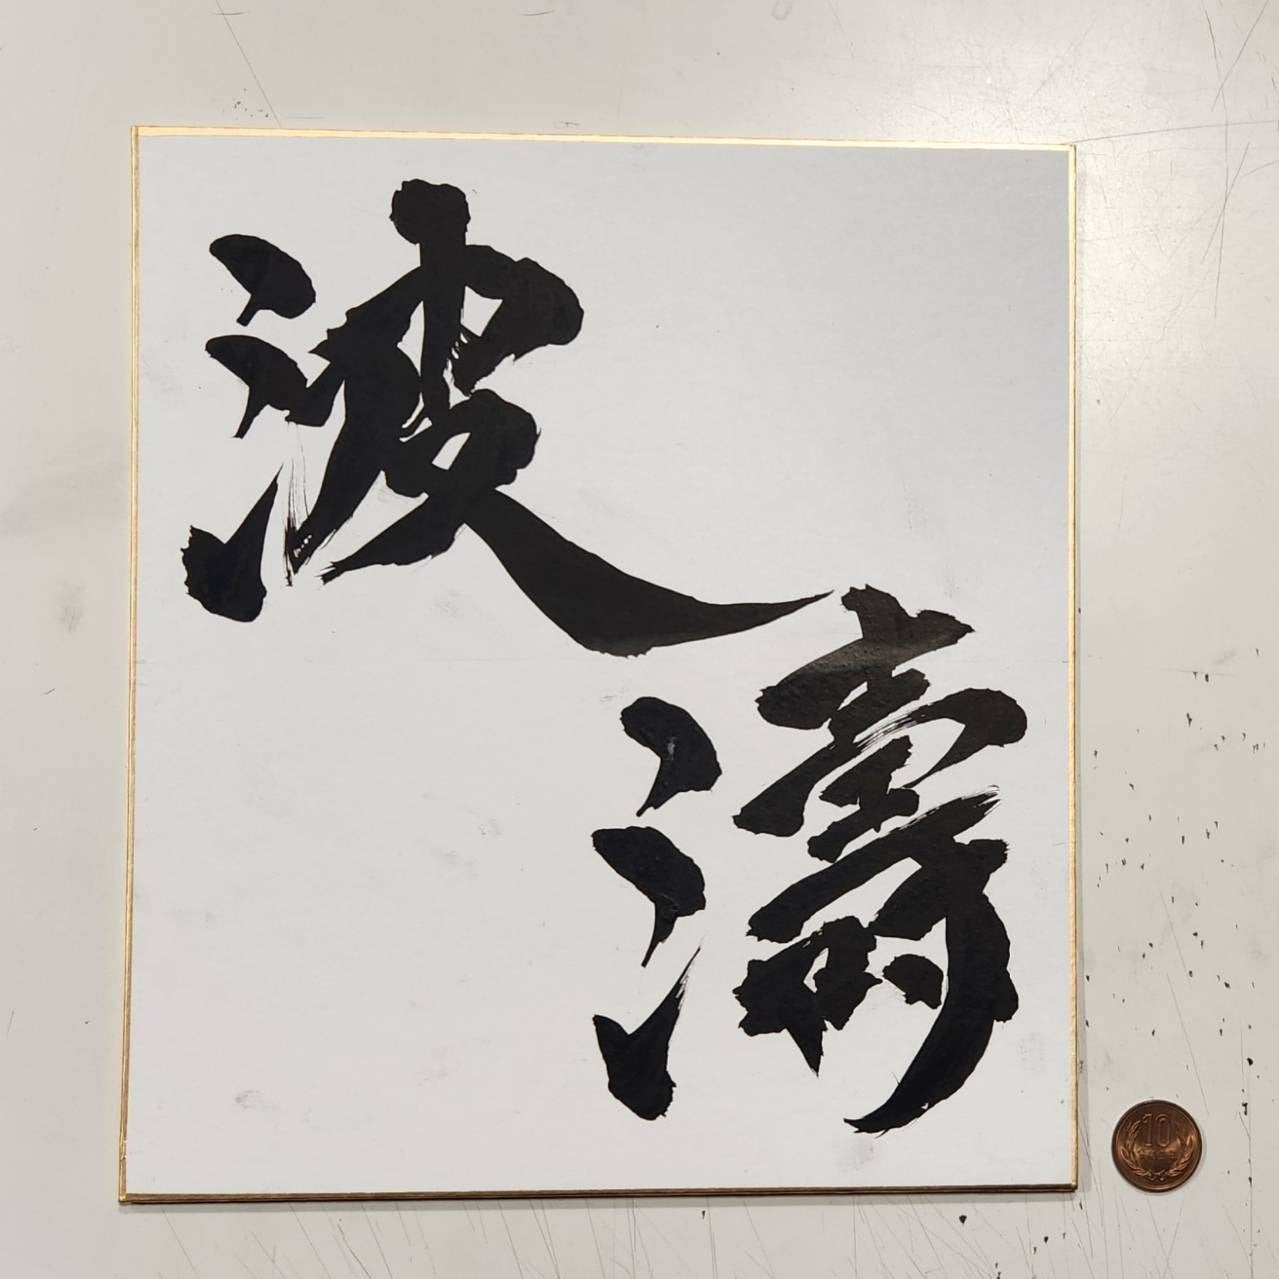 波
濤
10